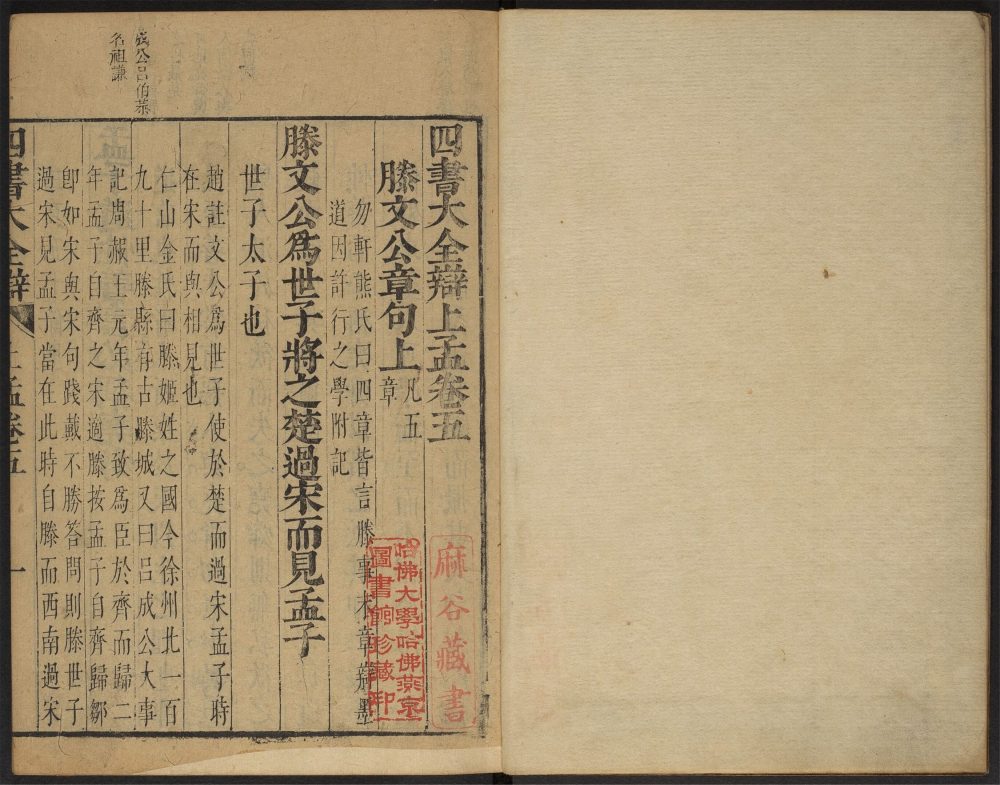 四書大全辯上孟卷五
滕文公章句上 凡五
章
勿軒熊氏曰四章皆言滕事末章辯墨
道因許行之學附記
滕文公為世子將之楚過宋而見孟子
世子太子也
趙註文公為世子使於楚而過宋孟子時
在宋而與相見也
仁山金氏曰滕姬姓之國今徐州北一百
九十里滕縣有古滕城又曰呂成公大事
記周赧王元年孟子致為臣於齊而歸二
年孟子自齊之宋適滕按孟子自齊歸鄒
即如宋與宋句踐戴不勝答問則滕世子
過宋見孟子當在此時自滕而西南過宋
成公呂伯恭
名祖謙
四書大全辯 上孟卷五 一
麻谷藏書
哈佛大學哈佛燕京
圖書館珍藏印